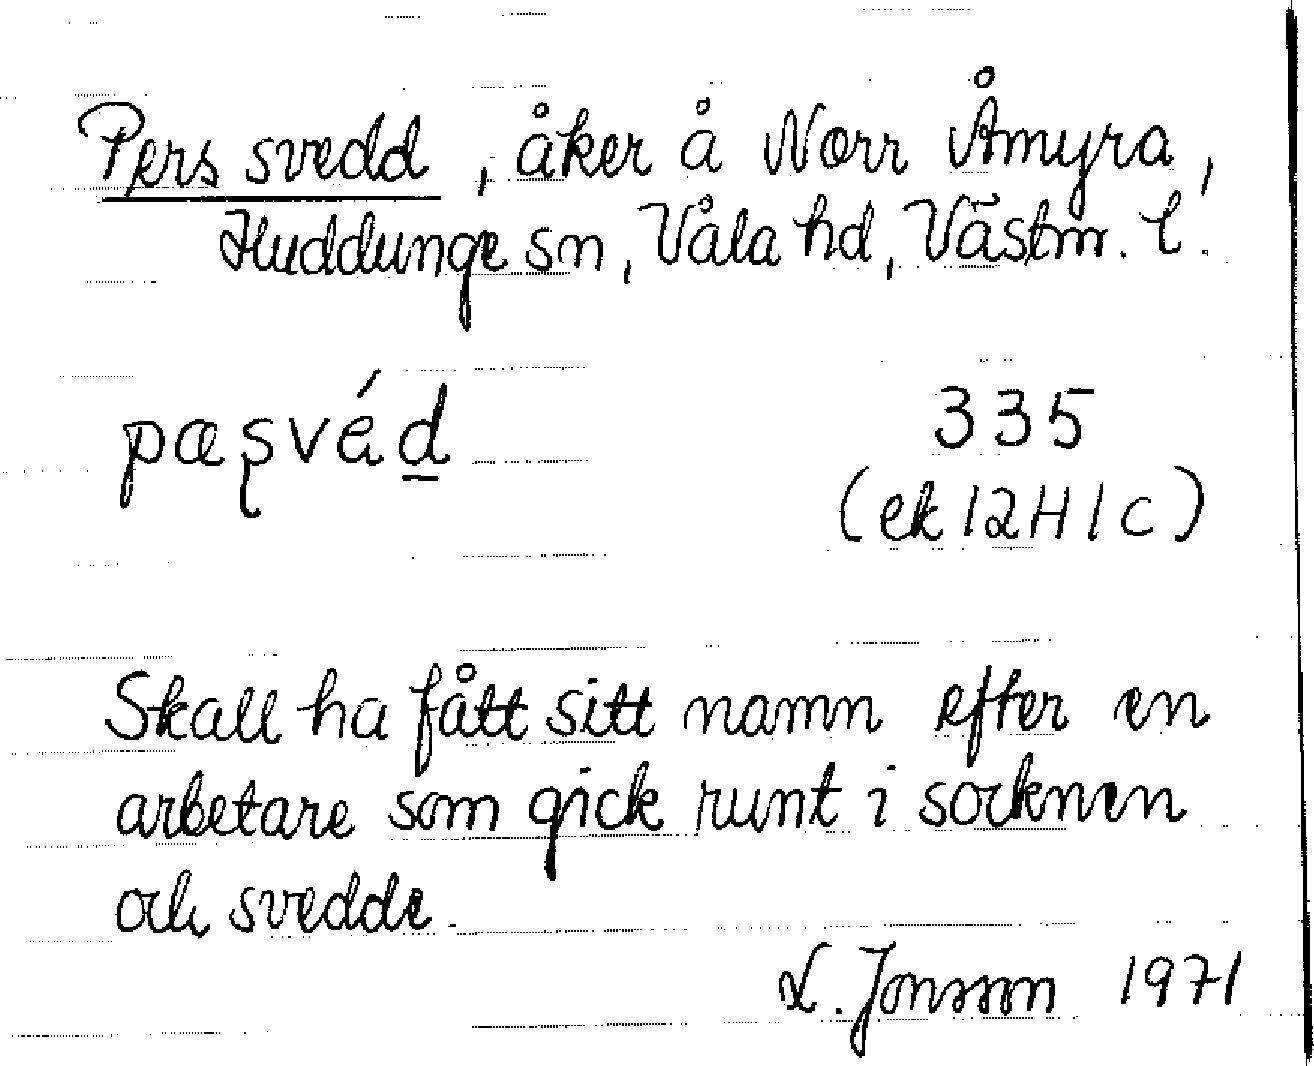 Pers svedd, åker å Norr Åmyra,
Huddunge sn, Våla hd, Västm. l.
pæʂvéd̲
335
(ek 12H1c)
Skall ha fått sitt namn efter en
arbetare som gick runt i socknen
och svedde.
L. Jonsson 1971